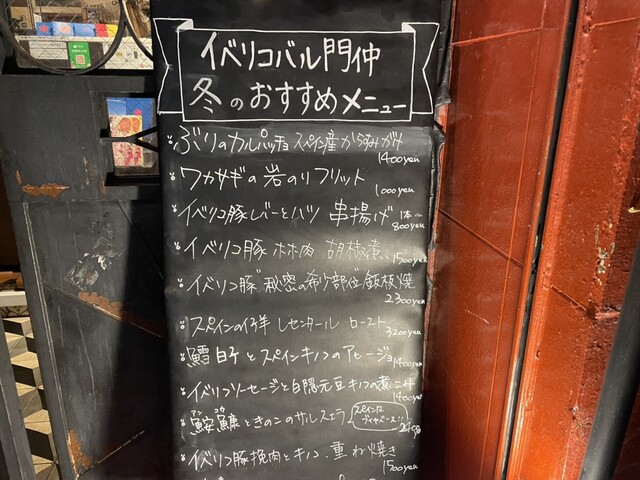 イベリコバル門仲
冬のおすすめメニュー
ぶりのカルパッチョ スペイン産からすみがけ
1400yen
ワカサギの岩のりフリット
1000yen
イベリコ豚レバーとハツ 串揚げ 1本〜
800yen
イベリコ豚 ホホ肉 胡椒煮
1500yen
イベリコ豚"秘密の希少部位"鉄板焼
2300yen
スペインの仔羊 レセンタール ロースト
3200yen
鱈白子とスペインキノコのアヒージョ
1400yen
イベリコソーセージと白隠元豆 キノコの煮込み
1400yen
アンコウ
鮟鱇ときのこのサルスエラ
スペイン版
ブイヤベース!!
イベリコ豚挽肉とキノコ 重ね焼き
1500yen